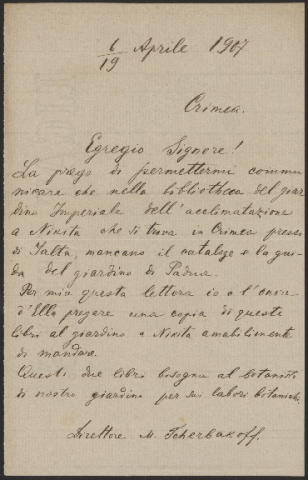 6/19 Aprile 1907
Crimea.
Egregio Signore!
La prego di permettermi commu
nicare che nella bibliotheca del giar
dino Imperiale dell'acclimatazione
a Nikita che si trova in Crimea presso
di Jalta, mancano il cataloge e la gui
da del giardino di Padua.
Per mia questa lettera io o l'onore
d'Ella pregare una copia di queste
libri al giardino a Nikita amabilimente
di mandare.
Questi due libri bisogna al botanisto
di nostro giardino per sui labori botanichi.
Direttore M. Tcherbakoff.